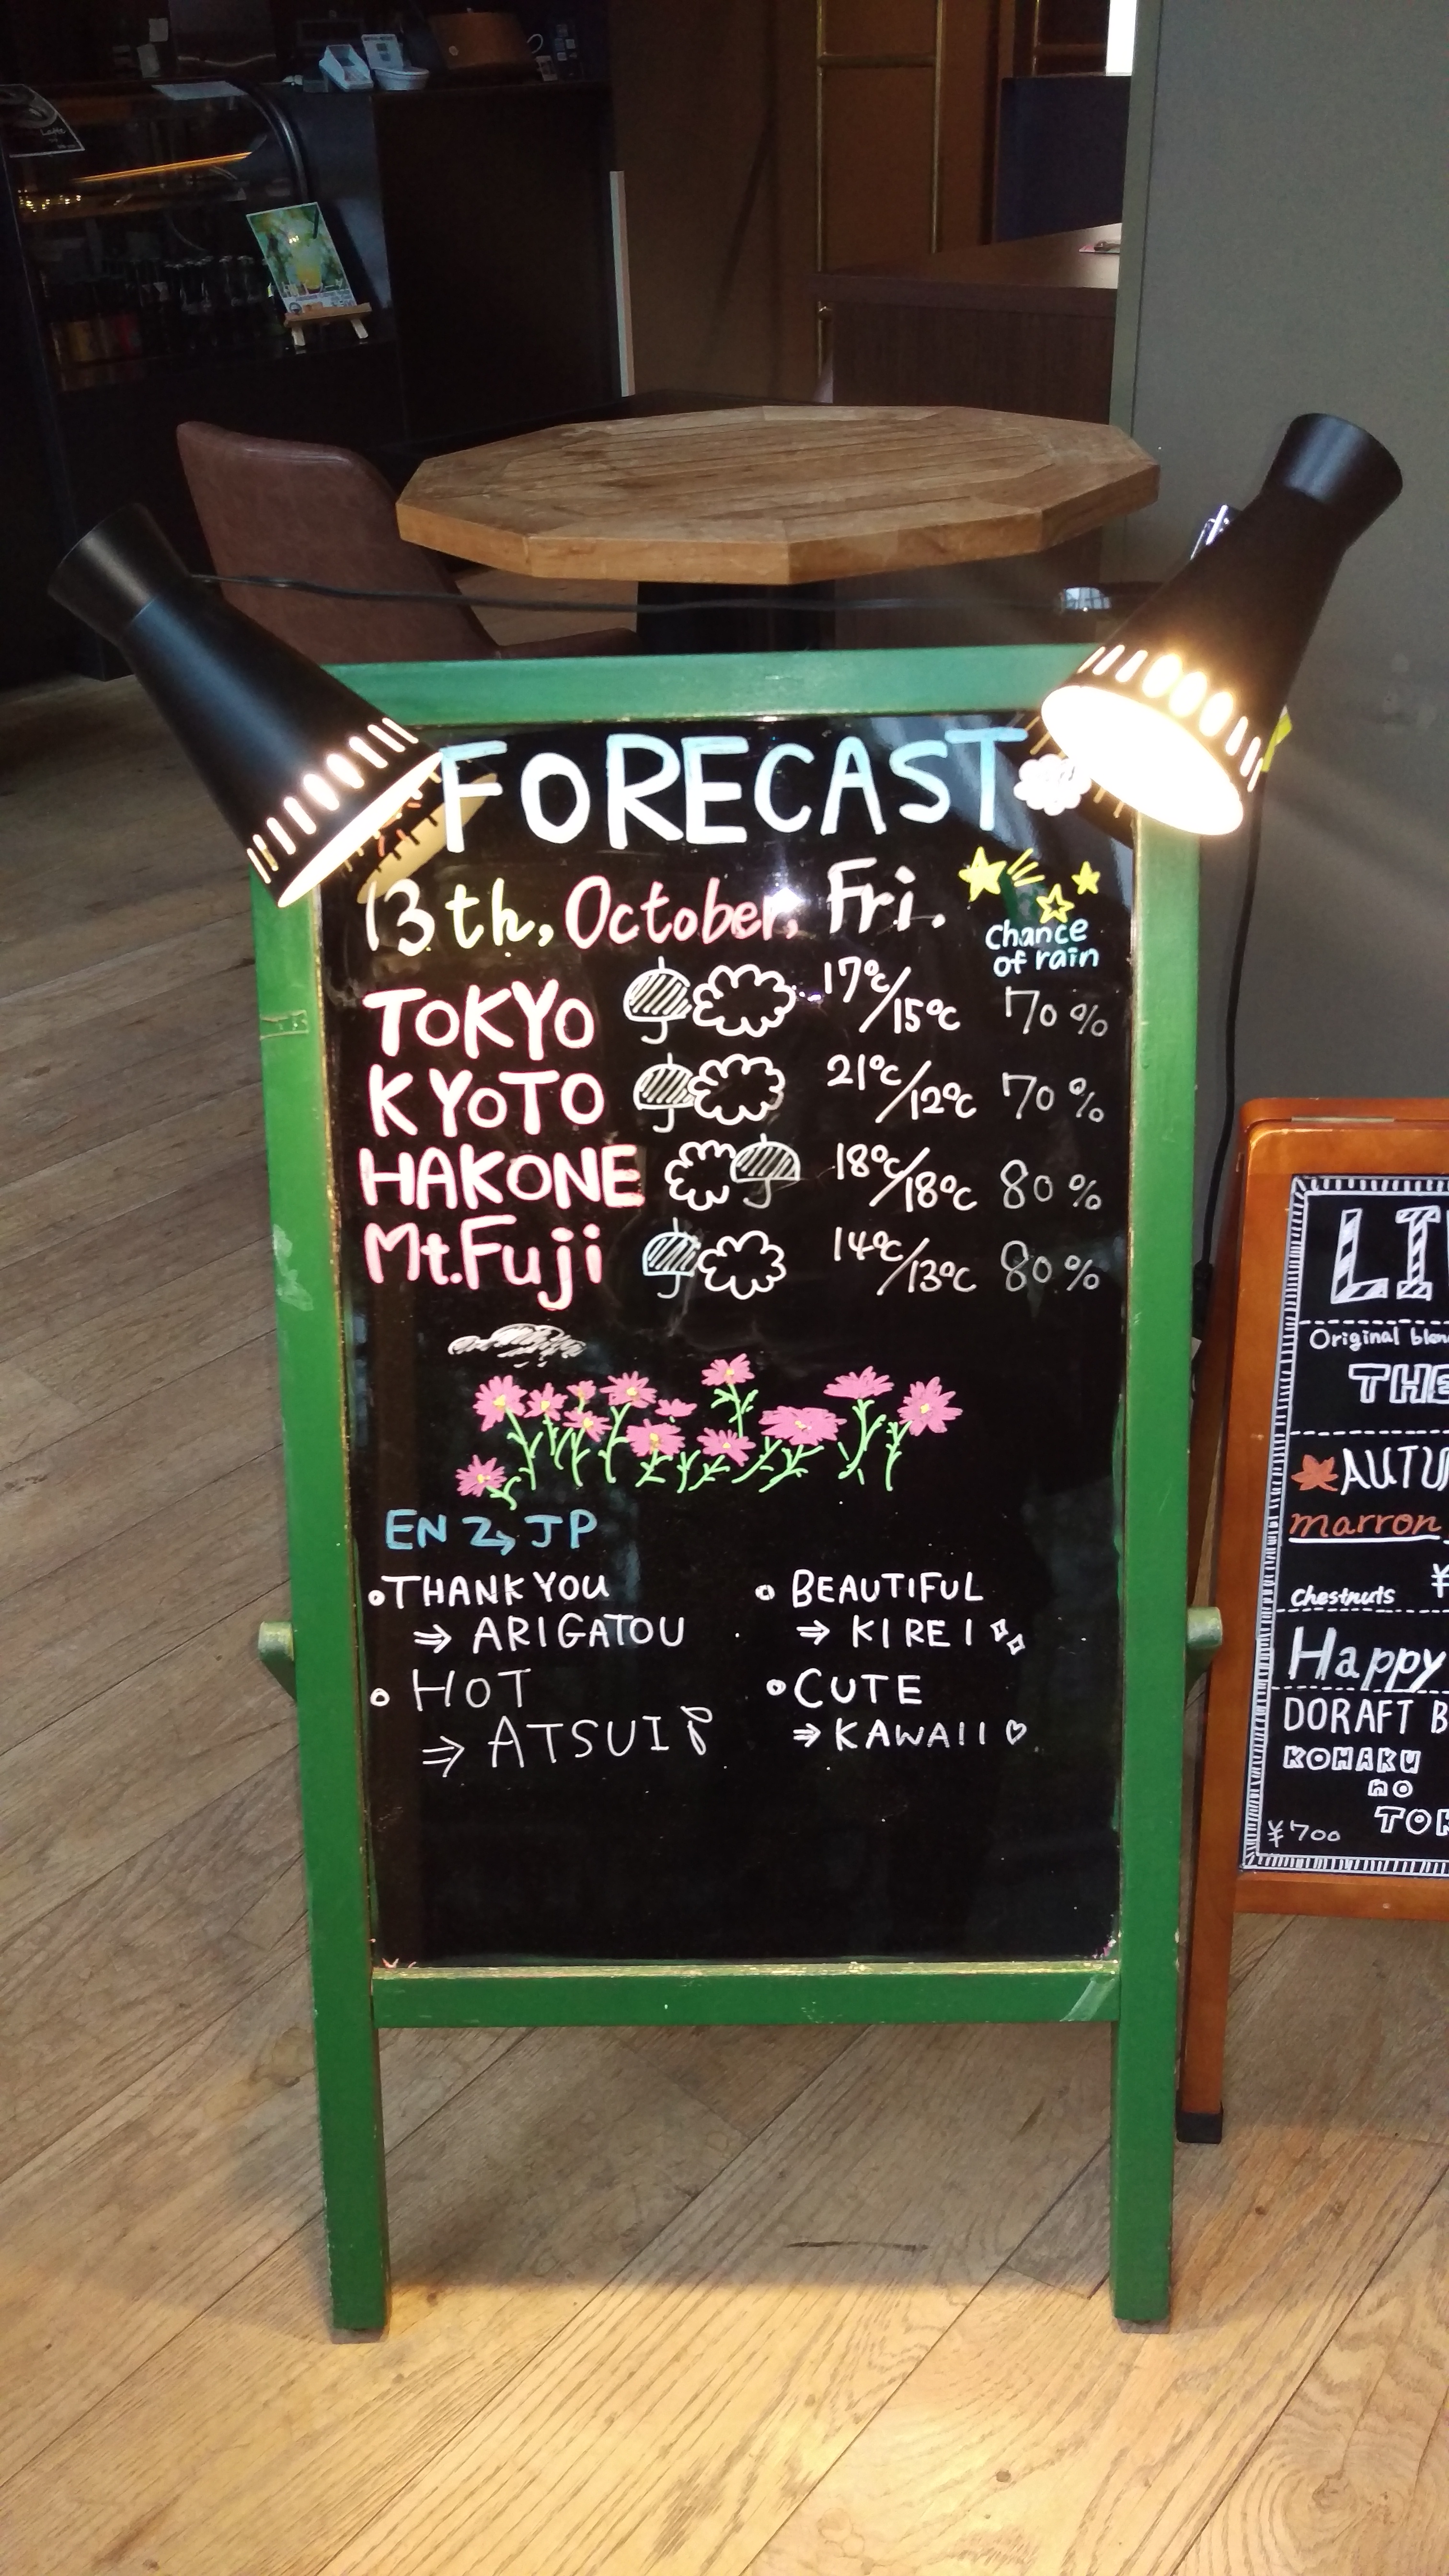 FORECAST
13th, October, Fri.
chance
of rain
TOKYO 17℃/15℃ 70%
KYOTO 21℃/12℃ 70%
HAKONE 18℃/18℃ 80%
Mt.Fuji 14℃/13℃ 80%
EN 2, JP
THANK YOU
⇒ ARIGATOU
HOT
⇒ ATSUI
BEAUTIFUL
⇒ KIREI
CUTE
⇒ KAWAII ♡
Original
THE
marron
¥
chestnuts
Happy
DORAFT
KOHAKU
no
¥700